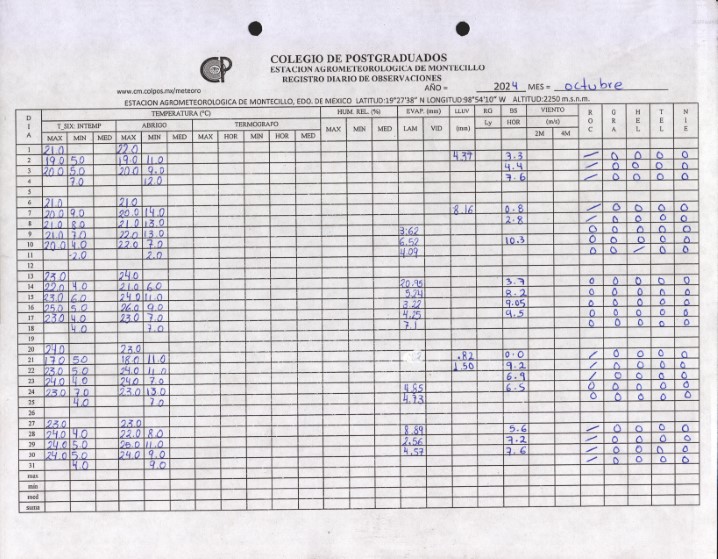 COLEGIO DE POSTGRADUADOS
ESTACION AGROMETEOROLOGICA DE MONTECILLO
REGISTRO DIARIO DE OBSERVACIONES
www.cm.colpos.mx/meteoro AÑO = 2024 MES = octubre
ESTACION AGROMETEOROLOGICA DE MONTECILLO, EDO. DE MEXICO LATITUD:19°27'38" N LONGITUD:98°54'10" W ALTITUD:2250 m.s.n.m.
DIA TEMPERATURA (°C) HUM. REL. (%) EVAP. (mm) LLUV RG BS VIENTO ROC GRA HEL TEL NIE
T_SIX INTEMP ABRIGO TERMOGRAFO MAX MIN MED LAM VID (mm) Ly HOR (m/s)
MAX MIN MED MAX MIN MED MAX HOR MIN HOR MED 2M 4M
1 21.0 22.0
2 19.0 5.0 19.0 11.0 4.37 3.3 / 0 0 0 0
3 20.0 5.0 20.0 9.0 4.4 / 0 0 0 0
4 7.0 12.0 7.6 / 0 0 0 0
5
6 21.0 21.0
7 20.0 9.0 20.0 14.0 8.16 0.8 / 0 0 0 0
8 21.0 8.0 21.0 13.0 2.8 / 0 0 0 0
9 21.0 7.0 22.0 13.0 3.62 0 0 0 0 0
10 20.0 4.0 22.0 7.0 6.52 10.3 0 0 0 0 0
11 -2.0 2.0 4.09 0 0 / 0 0
12
13 23.0 24.0
14 22.0 4.0 21.0 6.0 20.95 3.7 0 0 0 0 0
15 23.0 6.0 24.0 11.0 5.24 8.2 0 0 0 0 0
16 25.0 5.0 26.0 9.0 3.22 9.05 0 0 0 0 0
17 23.0 4.0 23.0 7.0 4.25 9.5 0 0 0 0 0
18 4.0 7.0 7.1 0 0 0 0 0
19
20 24.0 23.0
21 17.0 5.0 18.0 11.0 .82 0.0 / 0 0 0 0
22 23.0 5.0 24.0 11.0 1.50 9.2 / 0 0 0 0
23 24.0 4.0 24.0 7.0 6.9 / 0 0 0 0
24 23.0 7.0 23.0 13.0 4.85 6.5 0 0 0 0 0
25 4.0 7.0 4.73 0 0 0 0 0
26
27 23.0 23.0
28 24.0 4.0 22.0 8.0 8.89 5.6 / 0 0 0 0
29 24.0 5.0 25.0 11.0 2.56 7.2 / 0 0 0 0
30 24.0 5.0 24.0 9.0 4.57 7.6 / 0 0 0 0
31 4.0 9.0 / 0 0 0 0
max
min
med
suma